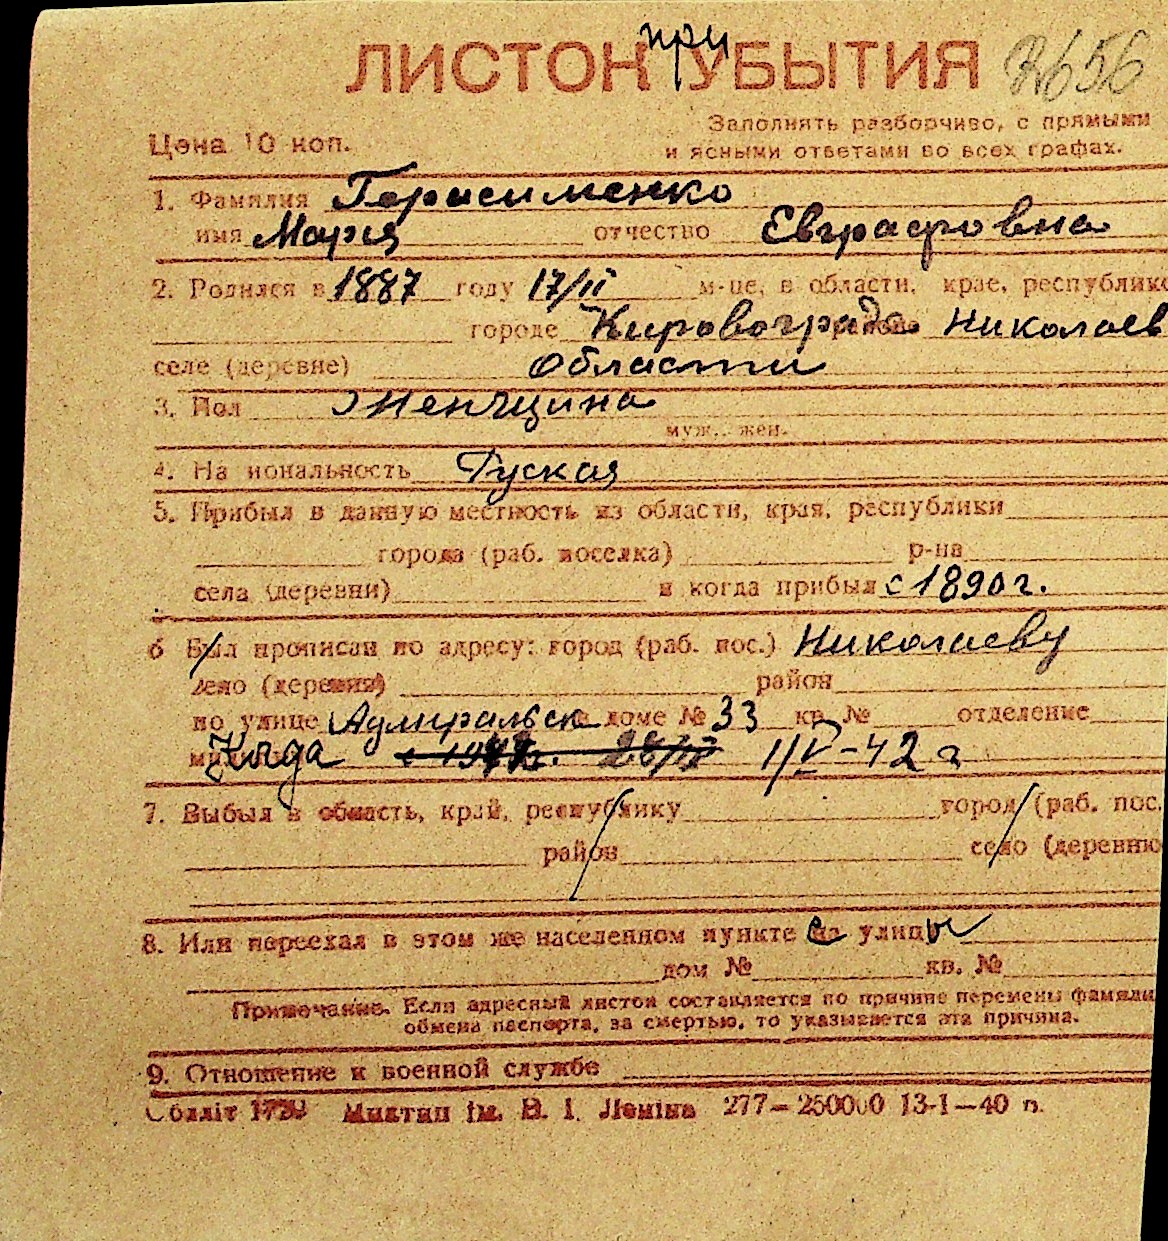 при
ЛИСТОК УБЫТИЯ 3656
Цена 10 коп.
Заполнять разборчиво, с прямыми
и ясными ответами во всех графах.
1. Фамилия Герасименко
имя Мария отчество Евграфовна
2. Родился в 1887 году 17/II м-це, в области, крае, республике
городе Кировограда Николаев
селе (деревне) области
3. Пол Женщина
муж., жен.
4. Национальность Руская
5. Прибыл в данную местность из области, края, республики
города (раб. поселка) р-на
села (деревни) и когда прибыл с 1890 г.
6 Был прописан по адресу: город (раб. пос.) Николаеву
село (деревня) район
по улице Адмиральск доме № 33 кв. № отделение
Куда 1/V-42 г
7. Выбыл в область, край, республику город (раб. пос.
район село (деревню
8. Или переехал в этом же населенном пункте с улицы
дом № кв. №
Примечание. Если адресный листок составляется по причине перемены фамили
обмена паспорта, за смертью, то указывается эта причина.
9. Отношение к военной службе
Облліт Миктип ім. В. І. Леніна 277—250000 13-1—40 р.